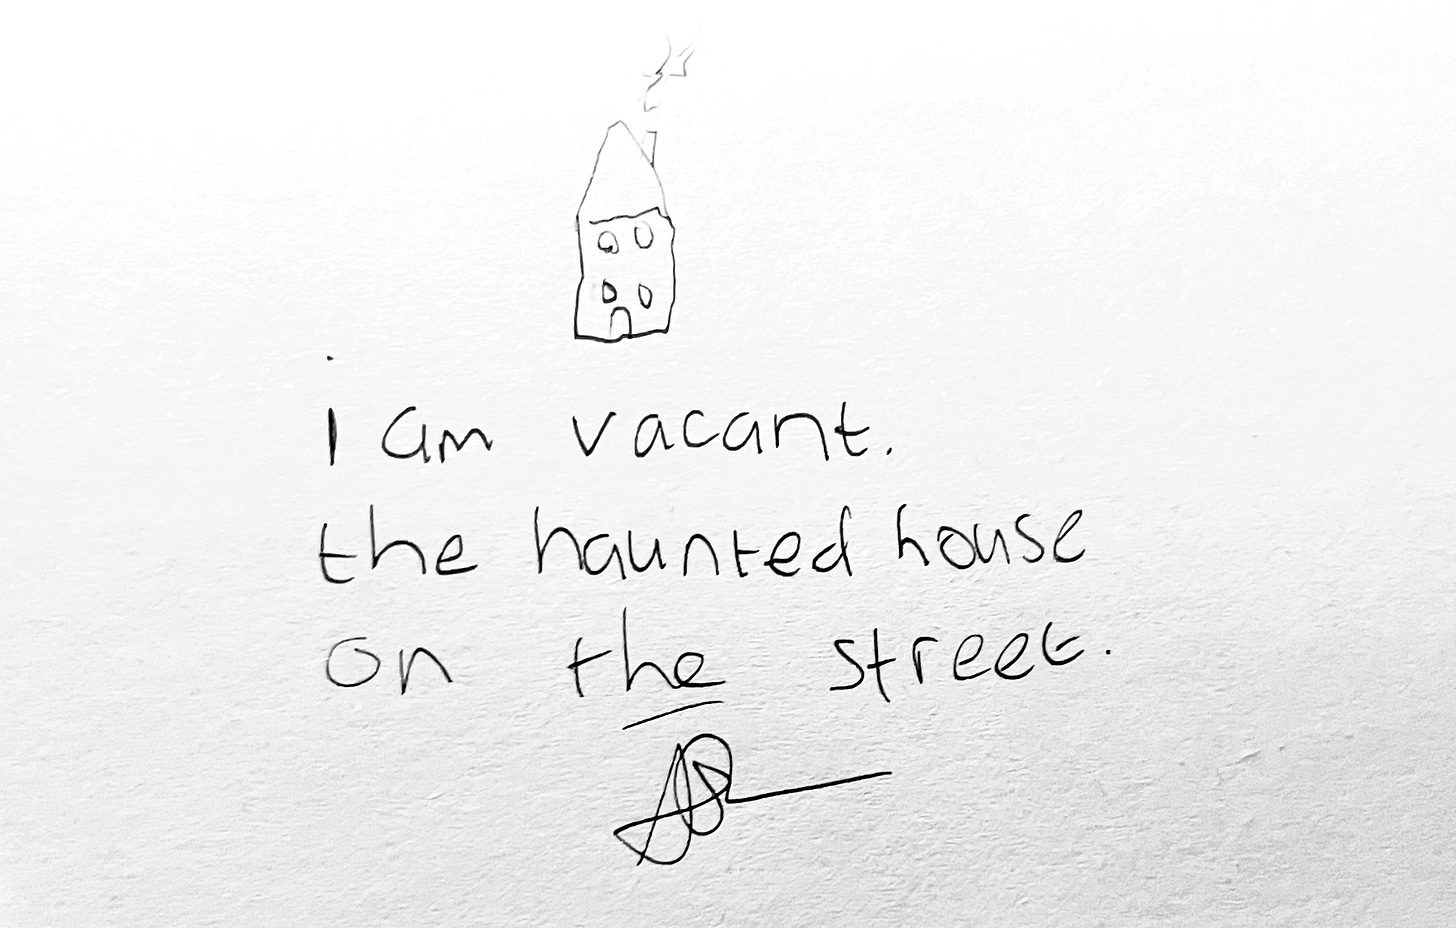 i am vacant.
the haunted house
on the street.